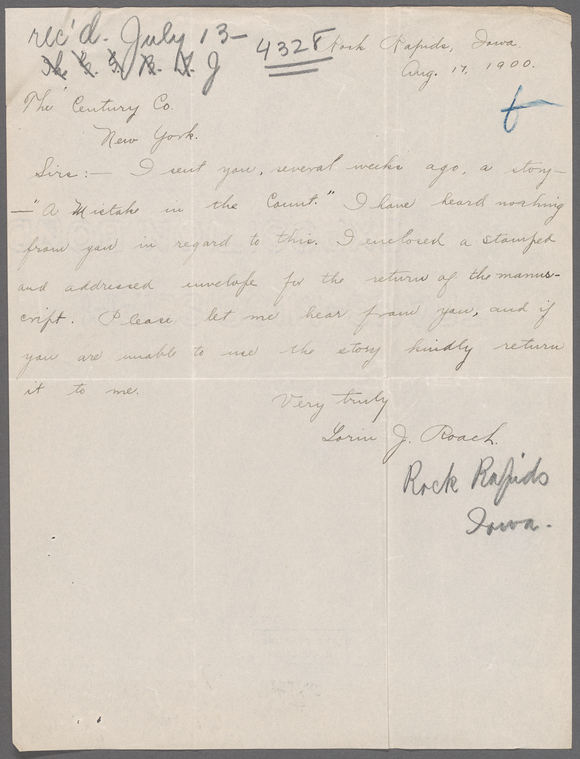 rec'd. July 13-
4328
Rock Rapids, Iowa
Aug. 17, 1900.
The Century Co.
New York.
Sirs:- I sent you, several weeks ago, a story-
-"A Mistake in the Count." I have heard nothing
from you in regard to this. I enclosed a stamped
and addressed envelope for the return of the manus-
cript. Please let me hear from you, and if
you are unable to use the story kindly return
it to me.
Very truly
Lorin J. Roach.
Rock Rapids
Iowa.